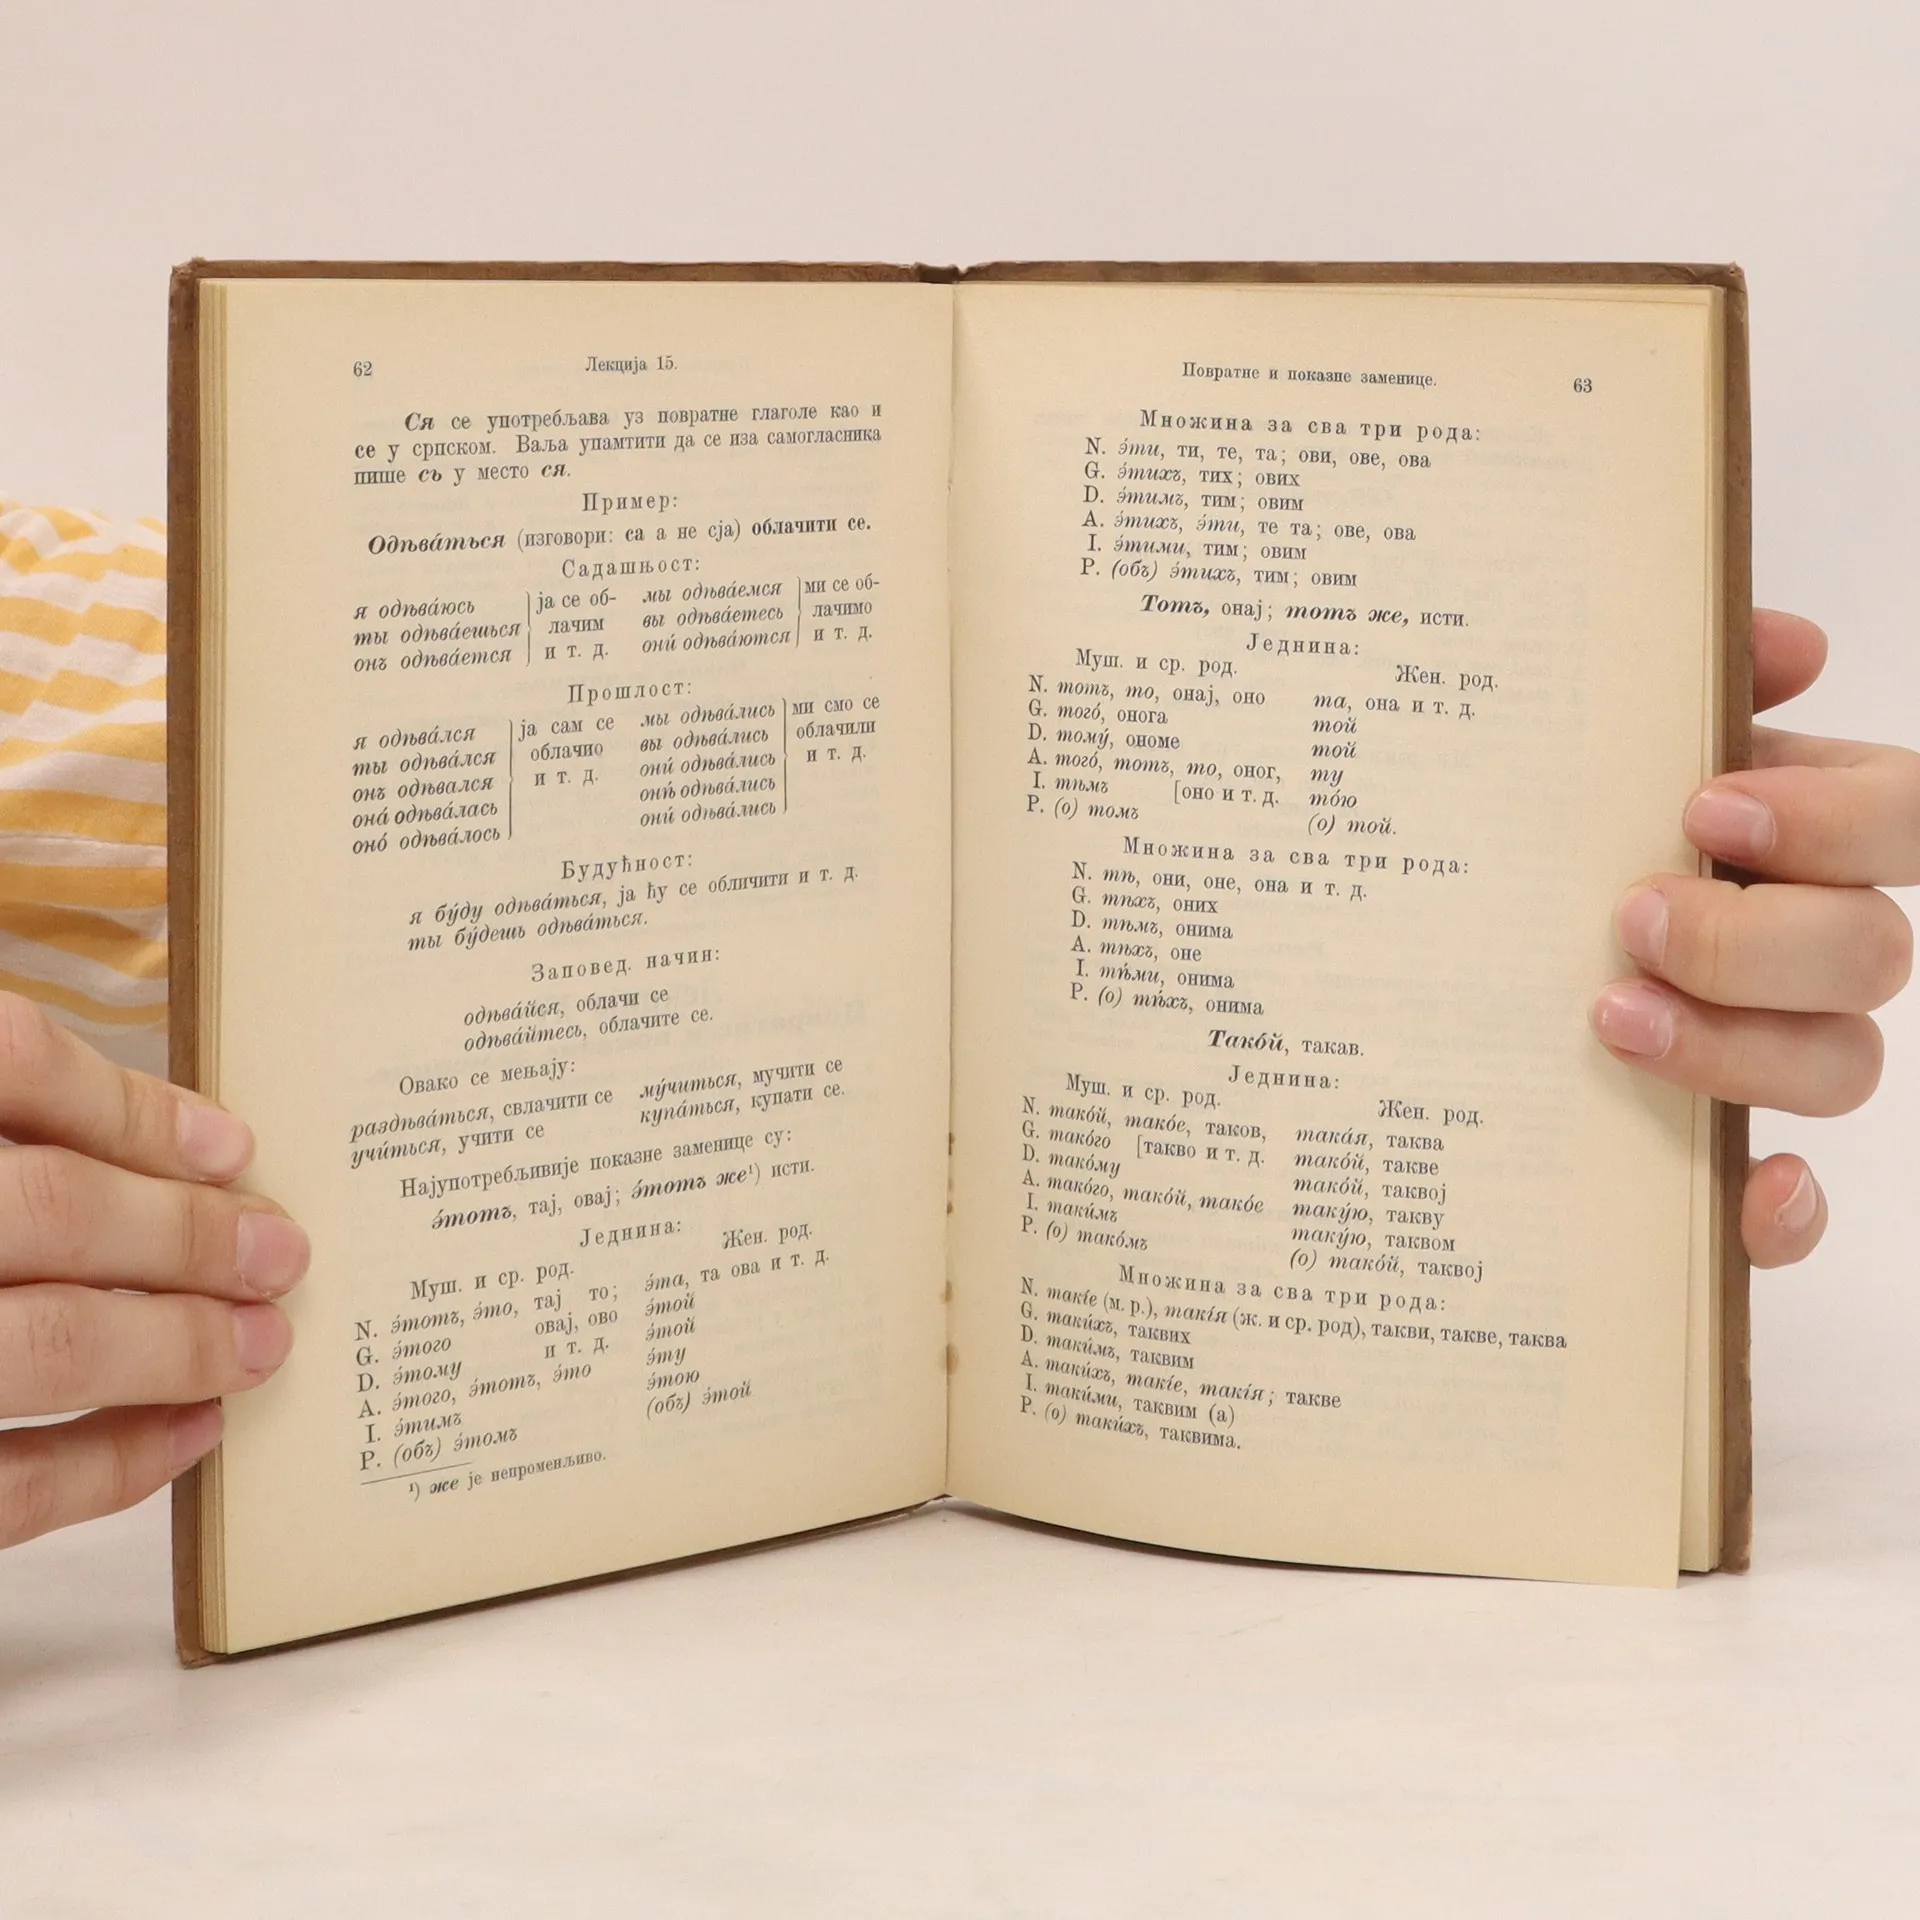 62 Лекција 15.
Ся се употребљава уз повратне глаголе као и
се у српском. Ваља упамтити да се иза самогласника
пише сь у место ся.
Пример:
Одѣва́ться (изговори: са а не сја) облачити се.
Садашњост:
я одѣва́юсь ја се об- мы одѣва́емся ми се об-
ты одѣва́ешься лачим вы одѣва́етесь лачимо
онъ одѣва́ется и т. д. они́ одѣва́ются и т. д.
Прошлост:
я одѣва́лся ја сам се мы одѣва́лись ми смо се
ты одѣва́лся облачио вы одѣва́лись облачили
онъ одѣвался и т. д. они́ одѣва́лись и т. д.
она́ одѣва́лась онѣ́ одѣва́лись
оно́ одѣва́лось они́ одѣва́лись
Будућност:
я бу́ду одѣва́ться, ја ћу се обличити и т. д.
ты бу́дешь одѣва́ться.
Заповед. начин:
одѣва́йся, облачи се
одѣва́йтесь, облачите се.
Овако се мењају:
раздѣва́ться, свлачити се му́читься, мучити се
учи́ться, учити се купа́ться, купати се.
Најупотребљивије показне заменице су:
э́тотъ, тај, овај; э́тотъ же¹) исти.
Једнина:
Муш. и ср. род. Жен. род.
N. э́тотъ, э́то, тај то; э́та, та ова и т. д.
G. э́того овај, ово э́той
D. э́тому и т. д. э́той
A. э́того, э́тотъ, э́то э́ту
I. э́тимъ э́тою
P. (объ) э́томъ (объ) э́той
¹) же је непроменљиво.
Повратне и показне заменице. 63
Множина за сва три рода:
N. э́ти, ти, те, та; ови, ове, ова
G. э́тихъ, тих; ових
D. э́тимъ, тим; овим
A. э́тихъ, э́ти, те та; ове, ова
I. э́тими, тим; овим
P. (объ) э́тихъ, тим; овим
Тотъ, онај; тотъ же, исти.
Једнина:
Муш. и ср. род. Жен. род.
N. тотъ, то, онај, оно та, она и т. д.
G. того́, онога той
D. тому́, ономе той
A. того́, тотъ, то, оног, ту
I. тѣмъ [оно и т. д. то́ю
P. (о) томъ (о) той.
Множина за сва три рода:
N. тѣ, они, оне, она и т. д.
G. тѣхъ, оних
D. тѣмъ, онима
A. тѣхъ, оне
I. тѣ́ми, онима
P. (о) тѣ́хъ, онима
Тако́й, такав.
Једнина:
Муш. и ср. род. Жен. род.
N. тако́й, тако́е, таков, така́я, таква
G. тако́го [такво и т. д. тако́й, такве
D. тако́му тако́й, таквој
A. тако́го, тако́й, тако́е таку́ю, такву
I. таки́мъ таку́ю, таквом
P. (о) тако́мъ (о) тако́й, таквој
Множина за сва три рода:
N. такі́е (м. р.), такі́я (ж. и ср. род), такви, такве, таква
G. таки́хъ, таквих
D. таки́мъ, таквим
A. таки́хъ, такі́е, такі́я; такве
I. таки́ми, таквим (а)
P. (о) таки́хъ, таквима.